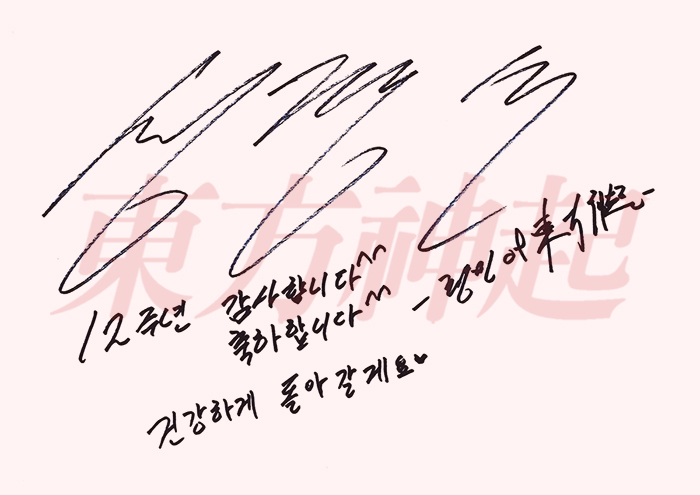 東方神起
12주년 감사합니다^^
축하합니다^^
건강하게 돌아갈게요♥